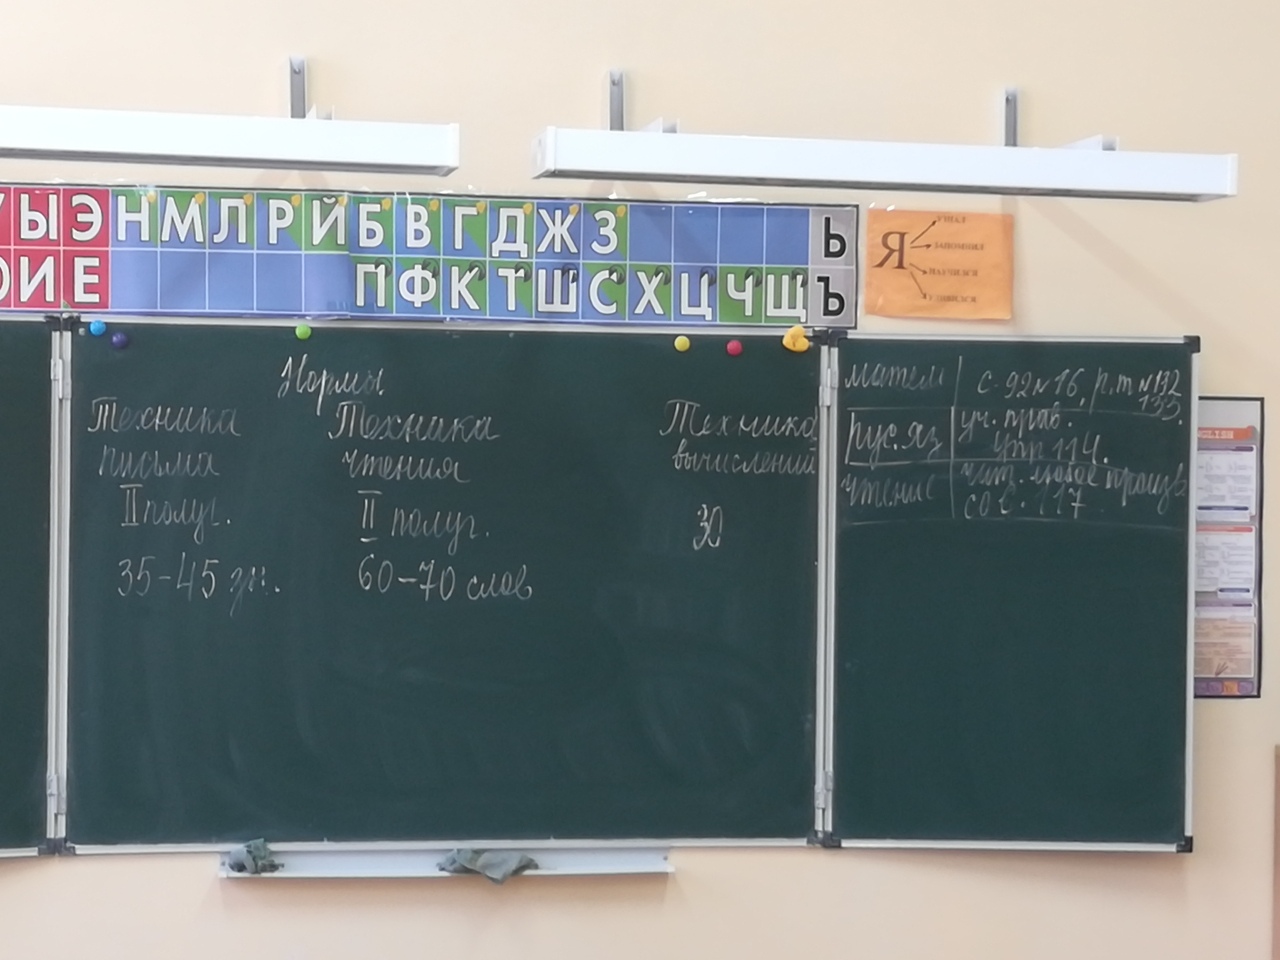 Ы Э Н М Л Р Й Б В Г Д Ж З Ь
И Е П Ф К Т Ш С Х Ц Ч Щ Ъ
Я
УЗНАЛ
ЗАПОМНИЛ
НАУЧИЛСЯ
УДИВИЛСЯ
Нормы
Техника
письма
II полуг.
35-45 зн.
Техника
чтения
II полуг.
60-70 слов
Техника
вычислений
30
матем с. 92 №16, р.т №132
133.
рус. яз уч. прав.
упр 114.
чтение чит. любое произв
со с. 117